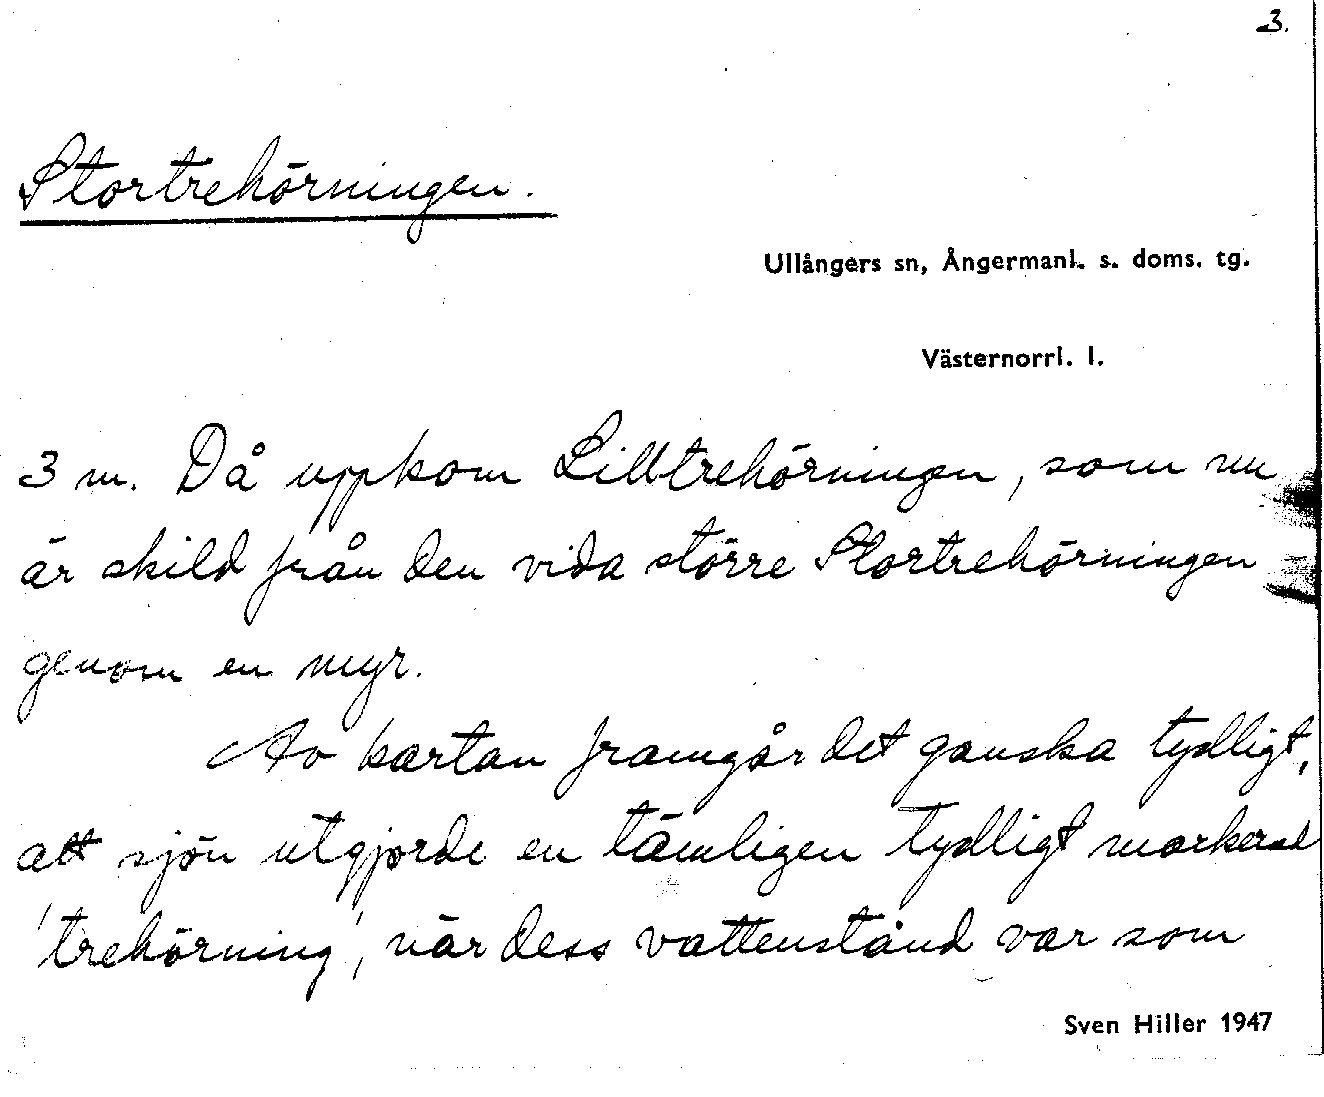 3.
Stortrehörningen.
Ullångers sn, Ångermanl. s. doms. tg.
Västernorrl. l.
3 m. Då uppkom Lilltrehörningen, som nu
är skild från den vida större Stortrehörningen
genom en myr.
Av kartan framgår det ganska tydligt,
att sjön utgjorde en tämligen tydligt markerad
'trehörning', när dess vattenstånd var som
Sven Hiller 1947